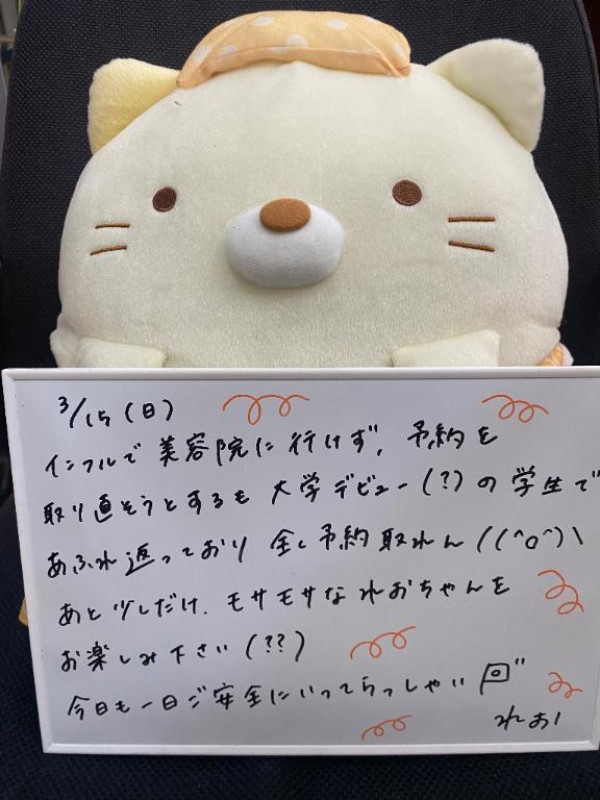 3/15(日)
インフルで美容院に行けず、予約を
取り直そうとするも大学デビュー(?)の学生で
あふれ返っており全く予約取れん((^o^)\
あと少しだけ、モサモサなれおちゃんを
お楽しみ下さい(??)
今日も一日ご安全にいってらっしゃい
れお